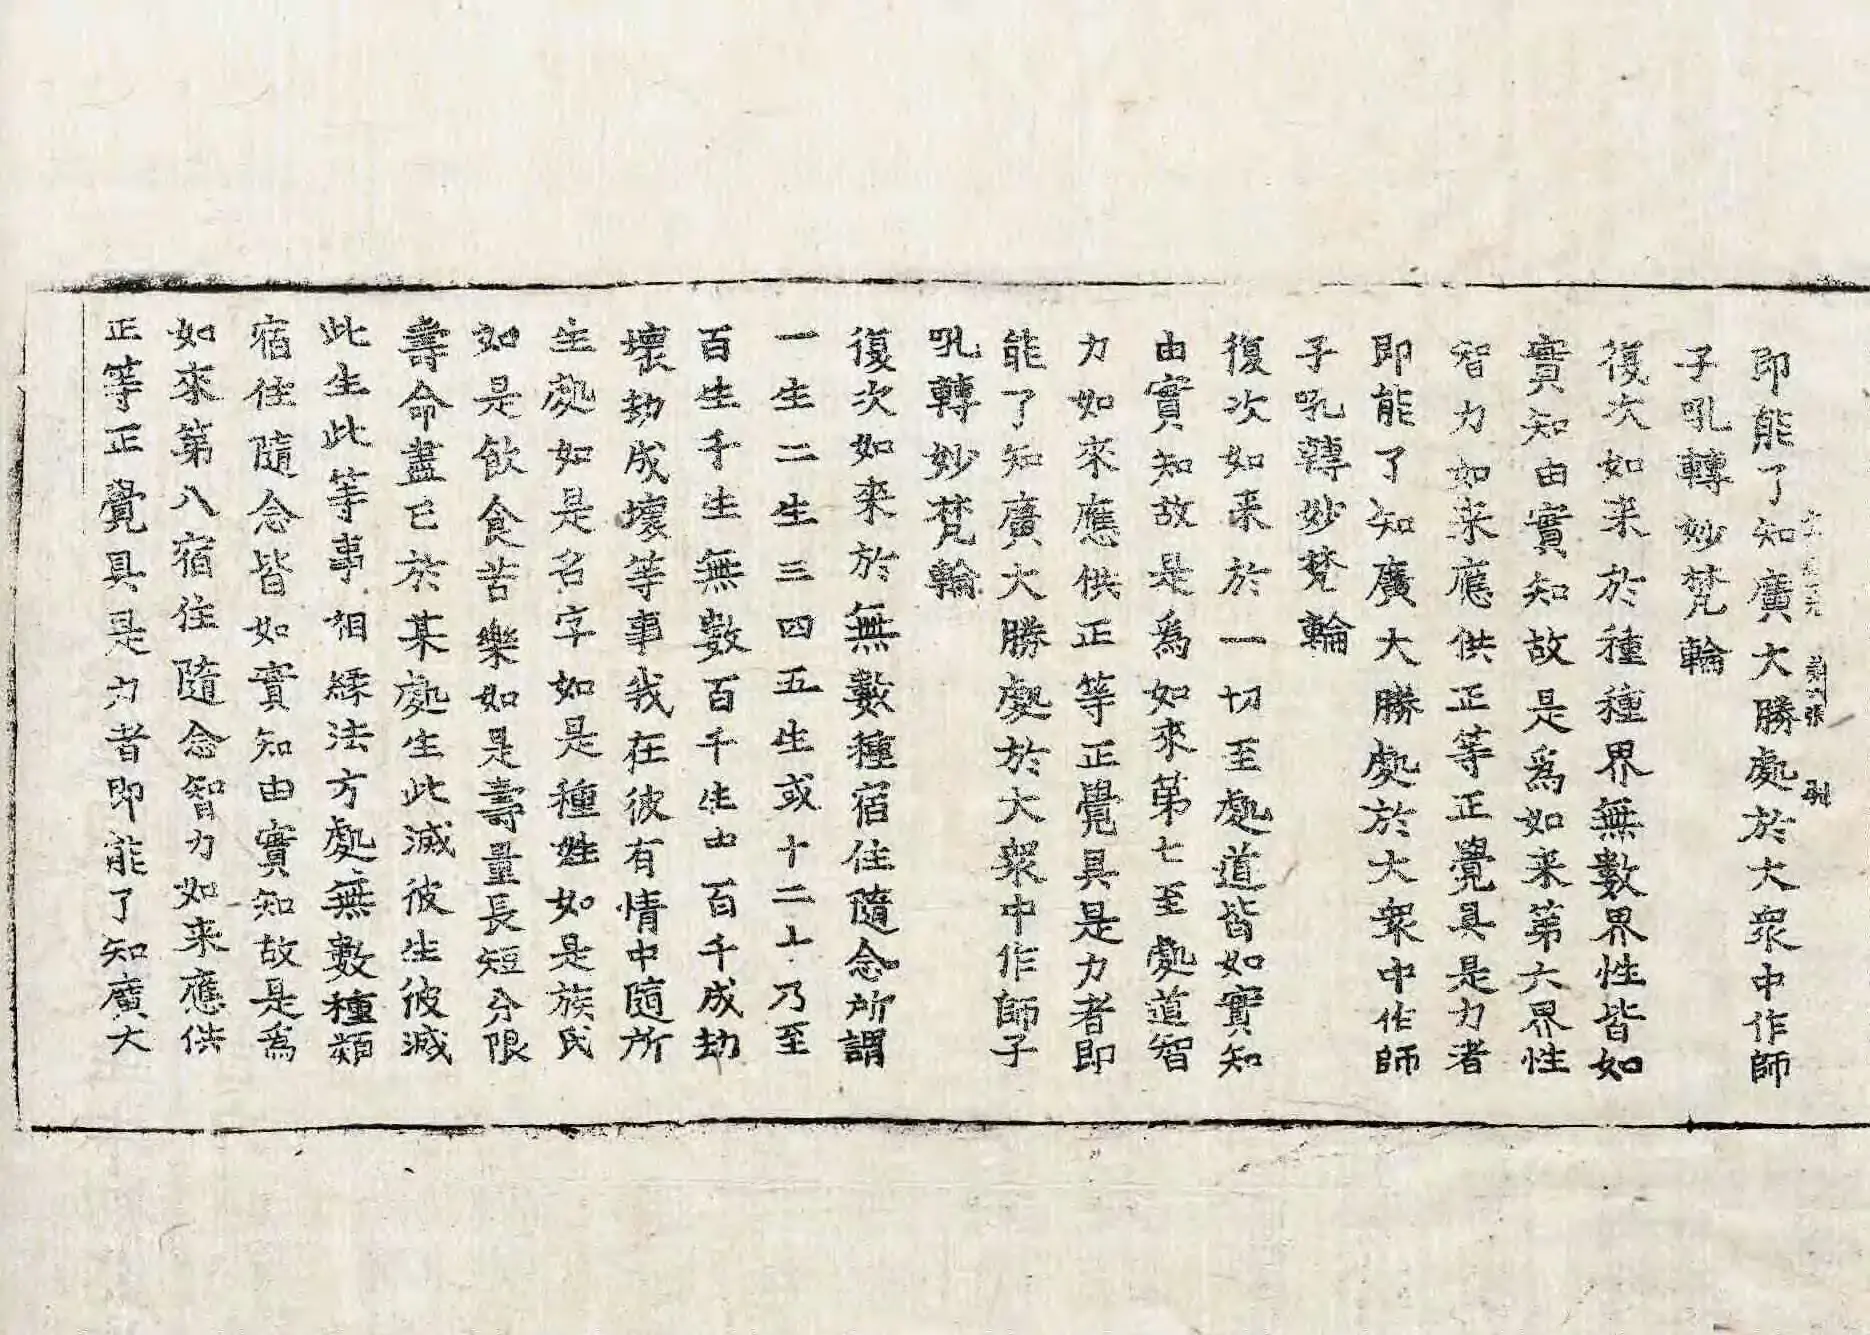 即能了知廣大勝處於大衆中作師
子吼轉妙梵輪
復次如来於種種界無數界性皆如
實知由實知故是爲如来第六界性
智力如来應供正等正覺具是力者
即能了知廣大勝處於大衆中作師
子吼轉妙梵輪
復次如来於一切至處道皆如實知
由實知故是爲如來第七至處道智
力如來應供正等正覺具是力者即
能了知廣大勝處於大衆中作師子
吼轉妙梵輪
復次如來於無數種宿住隨念所謂
一生二生三四五生或十二十乃至
百生千生無數百千生中百千成劫
壞劫成壞等事我在彼有情中隨所
生處如是名字如是種姓如是族氏
如是飲食苦樂如是壽量長短分限
壽命盡已於某處生此滅彼生彼滅
此生此等事相緣法方處無數種類
宿住隨念皆如實知由實知故是爲
如來第八宿住隨念智力如来應供
正等正覺具是力者即能了知廣大